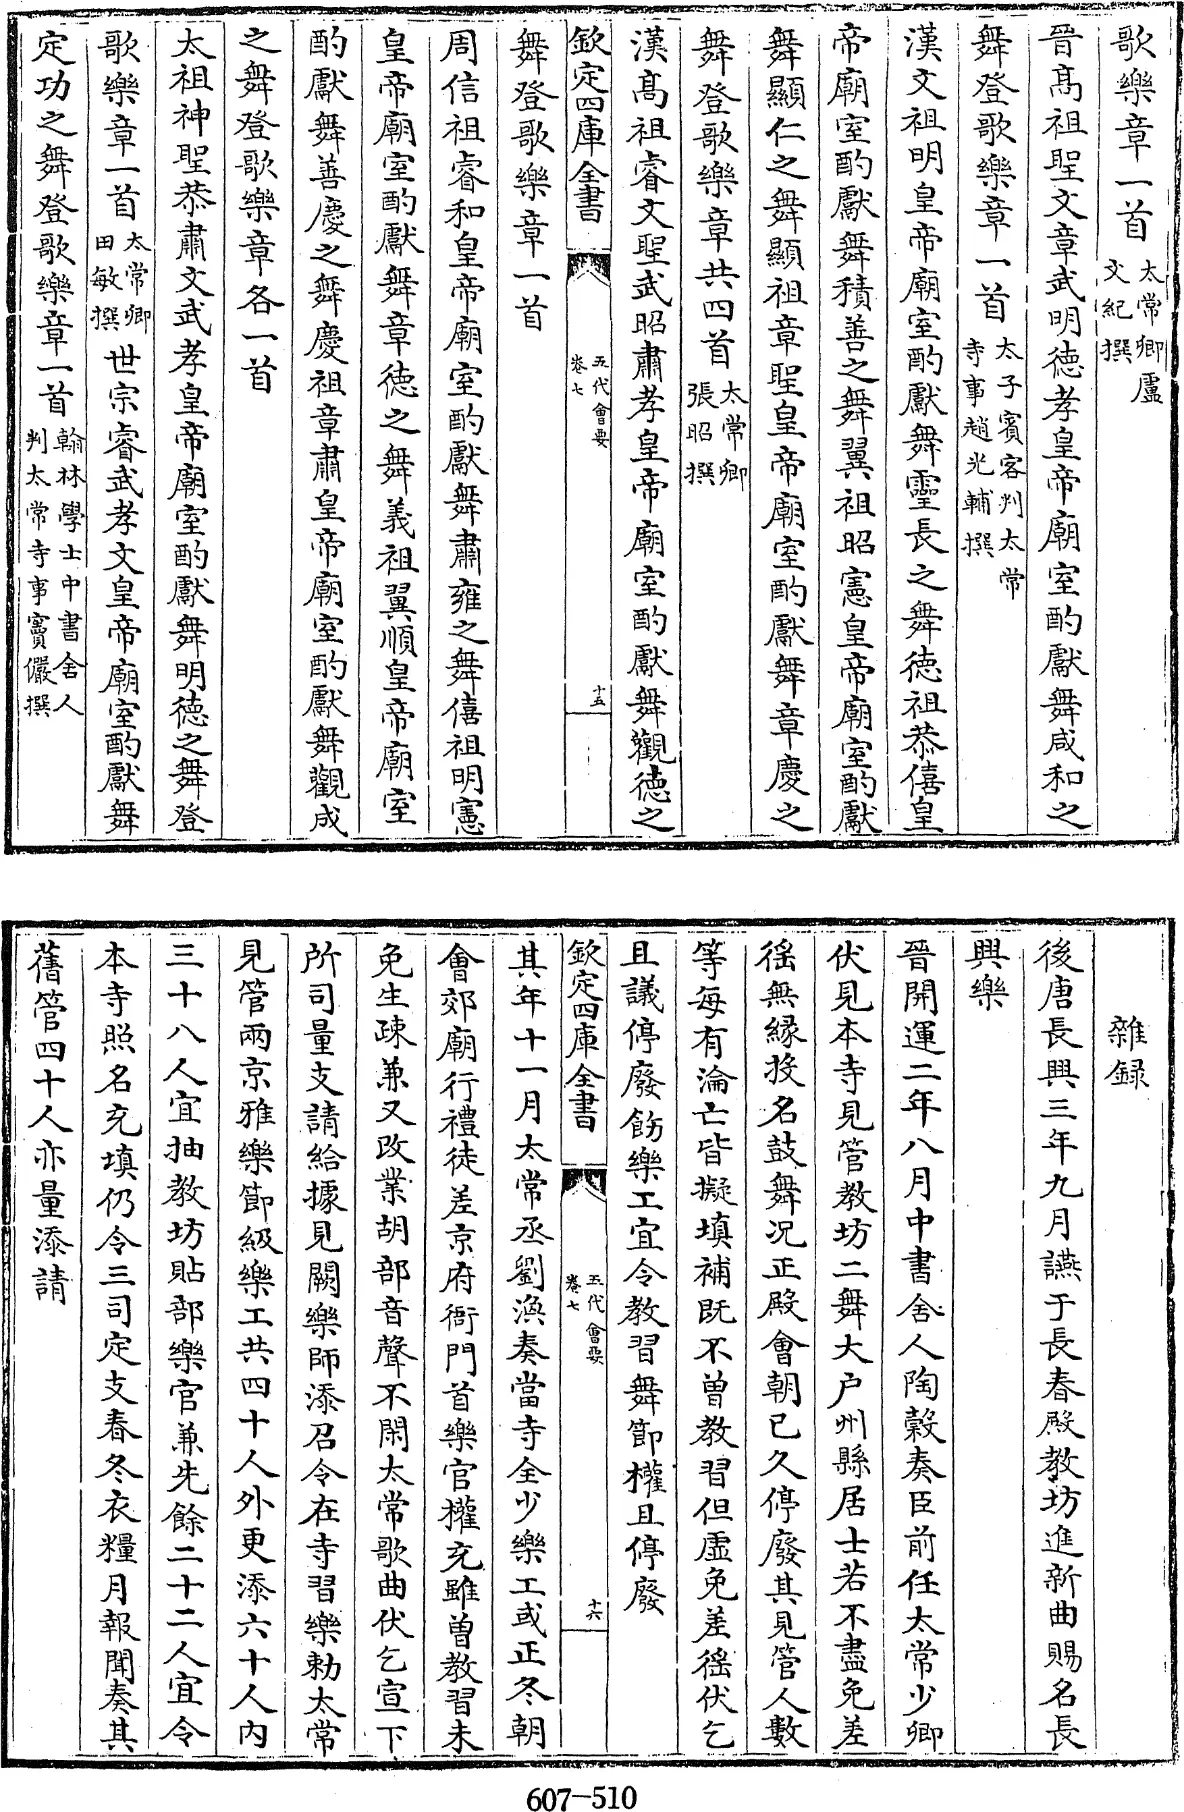 歌樂章一首太常卿盧文紀撰
晉髙祖聖文章武明徳孝皇帝廟室酌獻舞咸和之
舞登歌樂章一首太子賓客判太常寺事趙光輔撰
漢文祖明皇帝廟室酌獻舞靈長之舞徳祖恭僖皇
帝廟室酌獻舞積善之舞翼祖昭憲皇帝廟室酌獻
舞顯仁之舞顯祖章聖皇帝廟室酌獻舞章慶之
舞登歌樂章共四首太常卿張昭撰
漢髙祖睿文聖武昭肅孝皇帝廟室酌獻舞觀徳之
欽定四庫全書 五代會要 卷七 十五
舞登歌樂章一首
周信祖睿和皇帝廟室酌獻舞肅雍之舞僖祖明憲
皇帝廟室酌獻舞章徳之舞義祖翼順皇帝廟室
酌獻舞善慶之舞慶祖章肅皇帝廟室酌獻舞觀成
之舞登歌樂章各一首
太祖神聖恭肅文武孝皇帝廟室酌獻舞明徳之舞登
歌樂章一首太常卿田敏撰世宗睿武孝文皇帝廟室酌獻舞
定功之舞登歌樂章一首翰林學士中書舍人判太常寺事竇儼撰
雜録
後唐長興三年九月讌于長春殿教坊進新曲賜名長
興樂
晉開運二年八月中書舍人陶穀奏臣前任太常少卿
伏見本寺見管教坊二舞大户州縣居士若不盡免差
徭無縁投名鼓舞况正殿會朝已久停廢其見管人數
等每有淪亡皆擬填補既不曾教習但虛免差徭伏乞
且議停廢飭樂工宜令教習舞節權且停廢
欽定四庫全書 五代會要 卷七 十六
其年十一月太常丞劉渙奏當寺全少樂工或正冬朝
會郊廟行禮徒差京府衙門首樂官權充雖曾教習未
免生疎兼又改業胡部音聲不閑太常歌曲伏乞宣下
所司量支請給據見闕樂師添召令在寺習樂勅太常
見管兩京雅樂節級樂工共四十人外更添六十人内
三十八人宜抽教坊貼部樂官兼充餘二十二人宜令
本寺照名充填仍令三司定支春冬衣糧月報聞奏其
舊管四十人亦量添請
607-510